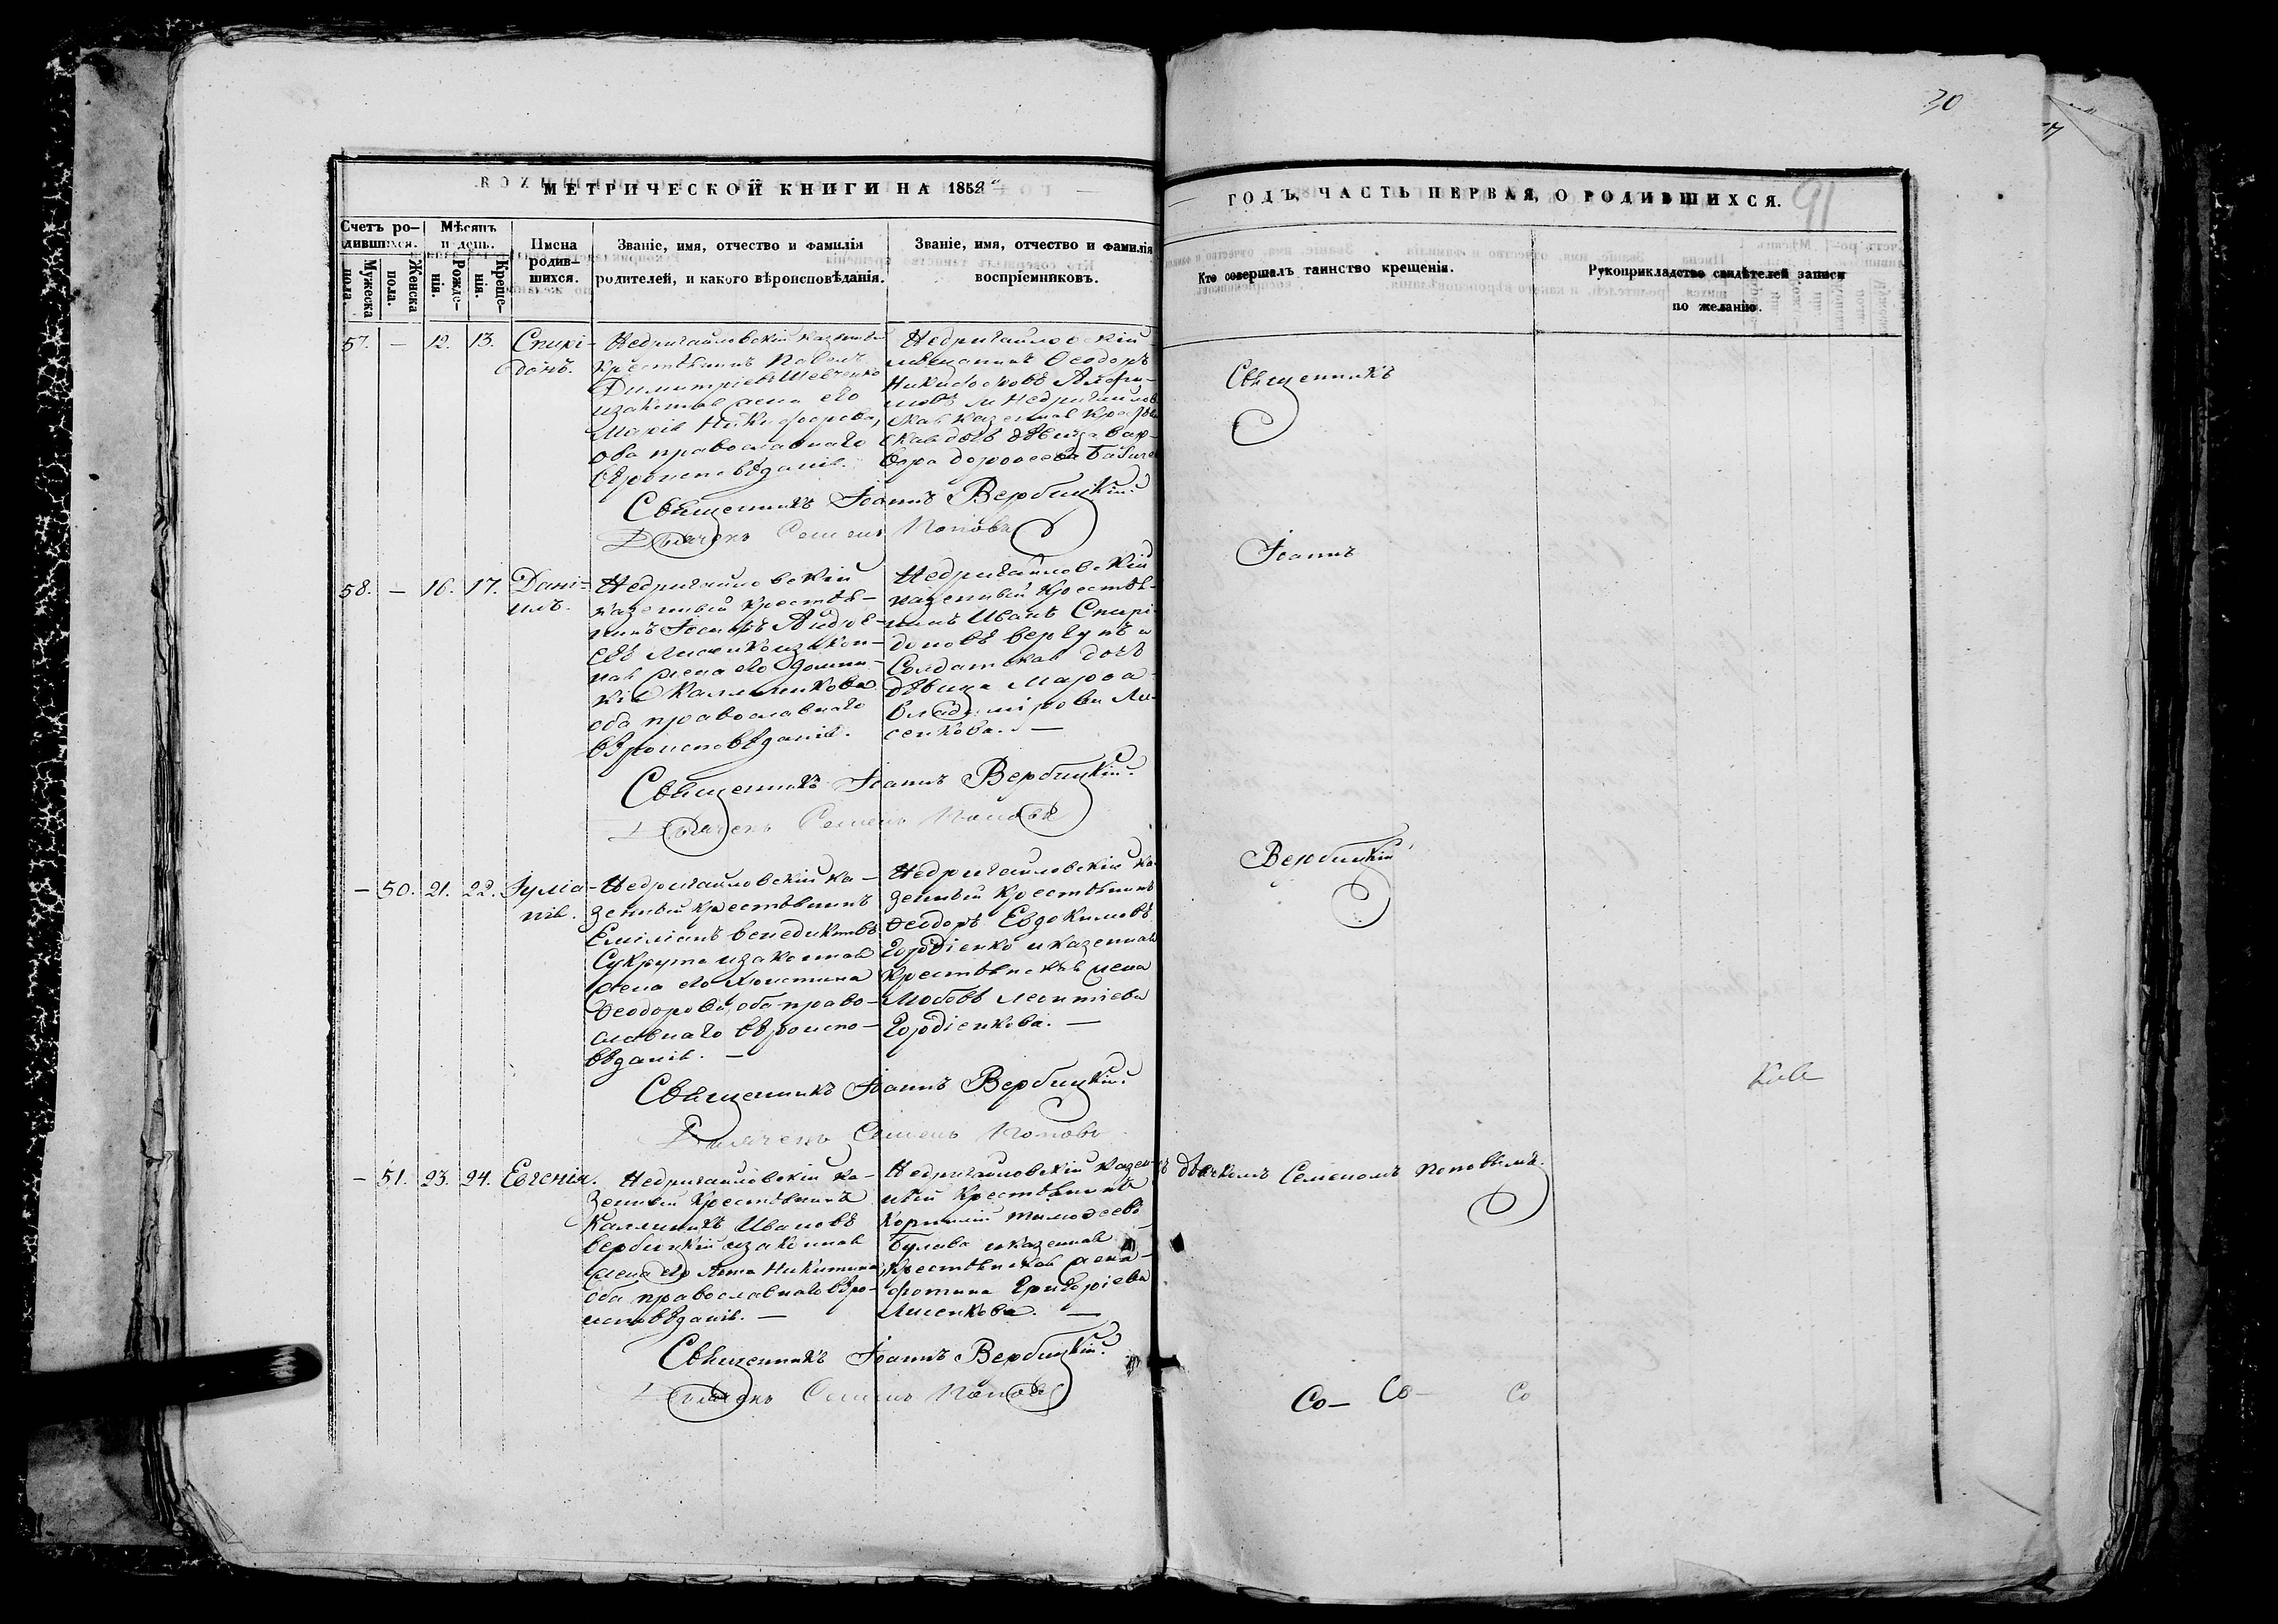 30
91
МЕТРИЧЕСКОЙ КНИГИ НА 1858
ГОДЪ, ЧАСТЬ ПЕРВАЯ, О РОДИВШИХСЯ.
Счетъ ро-
дившихся.
Мужеска
пола.
Женска
пола.
Мѣсяцъ
и день.
Рожде-
нія.
Креще-
нія.
Имена
родив-
шихся.
Званіе, имя, отчество и фамилія
родителей, и какого вѣроисповѣданія.
Званіе, имя, отчество и фамилія
воспріемниковъ.
Кто совершалъ таинство крещенія.
Рукоприкладство свидѣтелей записи
по желанію.
57. — 12. 13. Спирі-
донъ.
Недригайловскій казенный
крестьянинъ Павелъ
Димитріевъ Шевченко
и законная жена его
Марія Никифорова,
оба православнаго
вѣроисповѣданія.
Недригайловскій
мѣщанинъ Ѳеодоръ
Никифоровъ
и Недригайлов
ская казенная крестьян
ская дочь дѣвица Вар-
вара Дороѳеева
Священникъ Іоаннъ Вербицкій.
Дьячекъ Семенъ Поповъ
58. — 16. 17. Дані-
илъ.
Недригайловскій
казенный крестья-
нинъ Іосифъ Андре-
евъ Лисенко и закон-
ная жена его Домни-
кія Каллиникова
оба православнаго
вѣроисповѣданія.
Недригайловскій
казенный крестья-
нинъ Иванъ Спири-
доновъ Вергунъ и
Солдатская дочь
дѣвица Марѳа
Владимірова Ли-
сенкова. —
Священникъ Іоаннъ Вербицкій.
Дьячекъ Семенъ Поповъ
— 50. 21. 22. Іуліа-
нія.
Недригайловскій ка-
зенный крестьянинъ
Емиліанъ Венедиктовъ
Сукрута и законная
жена его Христина
Ѳеодорова, оба право-
славнаго вѣроиспо-
вѣданія. —
Недригайловскій ка-
зенный крестьянинъ
Ѳеодоръ Евдокимовъ
Гордіенко и казенная
крестьянская жена
Любовь Леонтіева
Гордіенкова. —
Священникъ Іоаннъ Вербицкій.
Дьячекъ Семенъ Поповъ
— 51. 23. 24. Евгенія.
Недригайловскій ка-
зенный крестьянинъ
Каллиникъ Ивановъ
Вербицкій и законная
жена его Анна Никитина
оба православнаго вѣро-
исповѣданія. —
Недригайловскій казен-
ный крестьянинъ
Корнилій Тимоѳеевъ
Булава и казенная
крестьянская жена
Фотина Григоріева
Лисенкова. —
Священникъ Іоаннъ Вербицкій.
Дьячекъ Семенъ Поповъ
Священникъ
Іоаннъ
Вербицкій
съ дьячкомъ Семеномъ Поповымъ.
Со— Со— Со